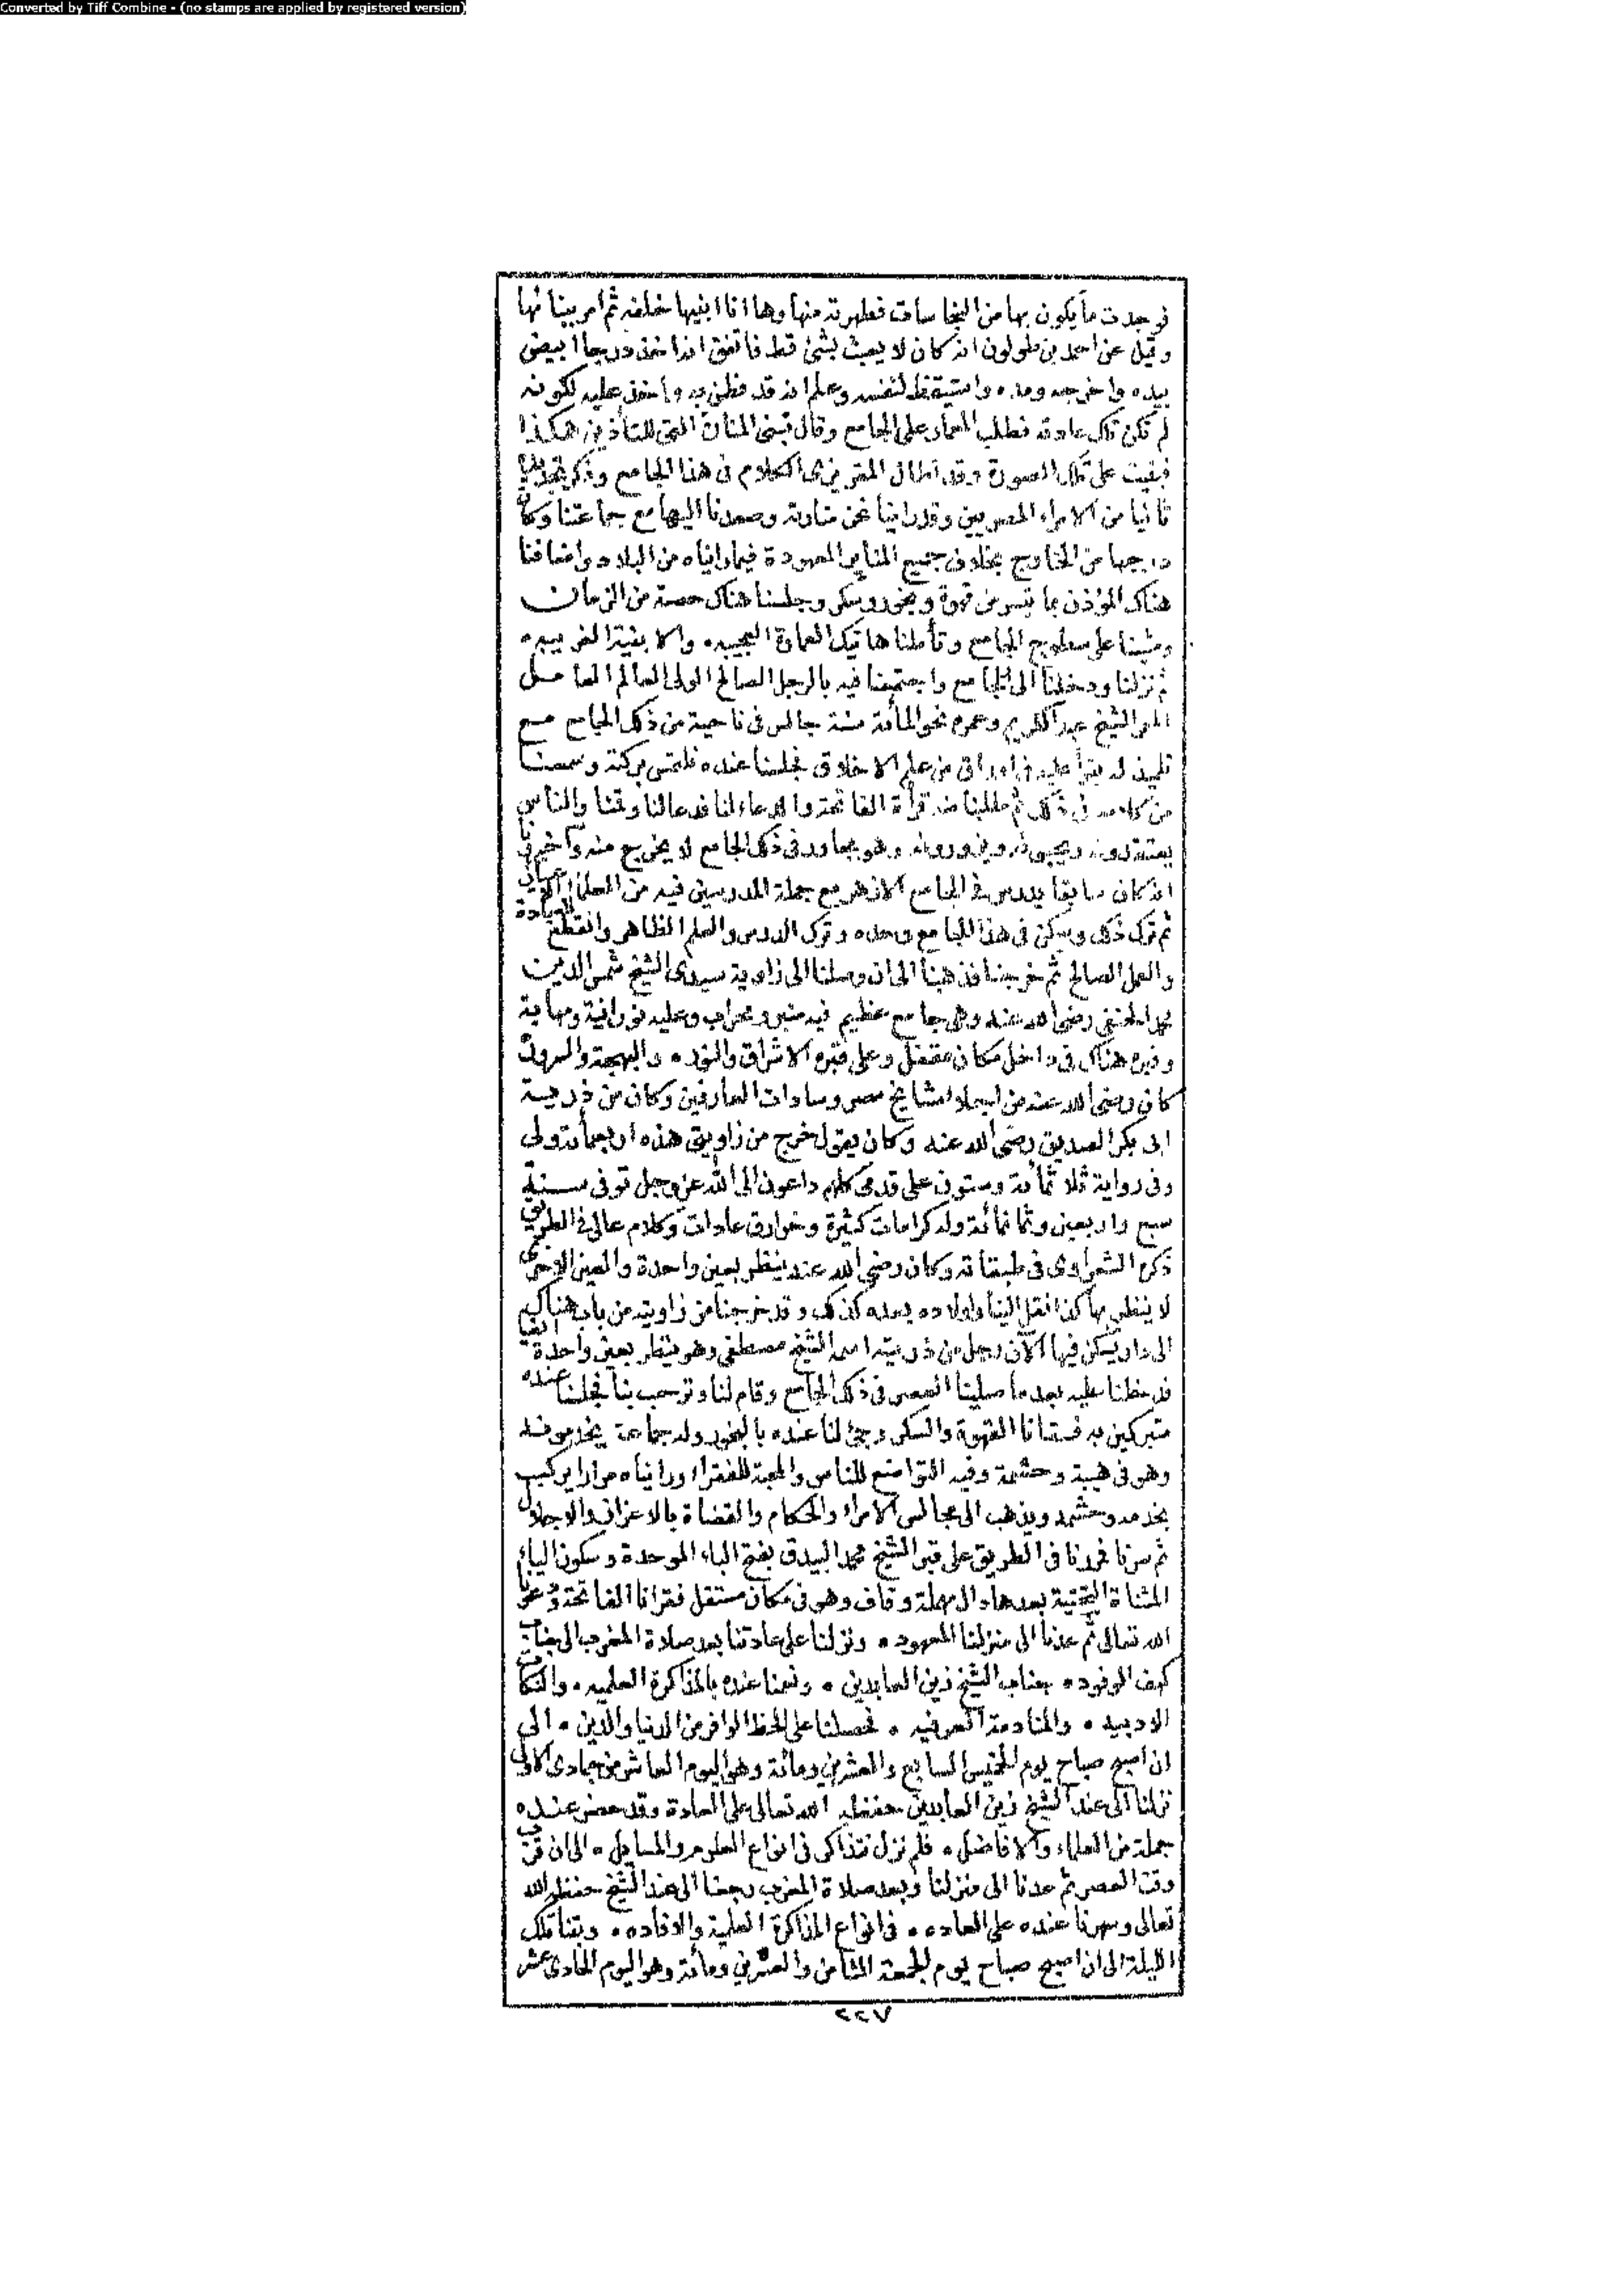 Converted by Tiff Combine - (no stamps are applied by registered version)
فوجدت ما يكون بها من النجاسات فطهرته منها وها انا ابنيها خلفه ثم امر ببنائها
وقيل عن احمد بن طولون انه كان لا يعبث بشئ قط فاتفق انه اخذ درجا ابيض
بيده واخرجه ومده واستيقظ لنفسه وعلم انه قد فطن به واخذ عليه لكونه
لم تكن تلك عادته فطلب المعمار على الجامع وقال تبنى المنارة التى للتأذين هكذا
فبقيت على تلك الصورة وقد اطال المقريزى الكلام فى هذا الجامع وذكر تجديده
ثانيا من الامراء المصريين وقد راينا نحن منارته وصعدنا اليها مع جماعتنا وكان
درجها من الخارج بخلاف جميع المناير المعهودة فيما رايناه من البلاد واضافنا
هناك المؤذن بما تيسر من قهوة وبخور وسكر وجلسنا هناك حصة من الزمان
ومشينا على سطوح الجامع وتأملنا هاتيك العمارة العجيبه والابنية الغريبه
ثم نزلنا ودخلنا الى الجامع واجتمعنا فيه بالرجل الصالح الولى العالم العامل
الشيخ عبد الكريم وعمره نحو المائة سنة جالس فى ناحية من ذلك الجامع مع
تلميذ له يقرأ عليه فى اوراق من علم الاخلاق فجلسنا عنده نلتمس بركته وسمعنا
من كلامه فى ذلك ثم طلبنا منه قرأة الفاتحة والدعاء لنا فدعا لنا وقمنا والناس
يعتقدونه ويحبونه ويزورونه وهو مجاور فى ذلك الجامع لا يخرج منه واخبرنا
انه كان سابقا يدرس فى الجامع الازهر مع جملة المدرسين فيه من العلماء
ثم ترك ذلك وسكن فى هذا الجامع وحده وترك الدرس والعلم الظاهر وانقطع للعبادة
والعمل الصالح ثم خرجنا فذهبنا الى ان وصلنا الى زاوية سيدى الشيخ شمس الدين
محمد الحنفى رضى الله عنه وهى جامع عظيم فيه منبر ومحراب وعليه نورانية ومهابة
وقبره هناك فى داخل مكان مقفل وعلى قبره الاشراق والنور والبهجة والسرور
كان رضى الله عنه من اجلاء مشايخ مصر وسادات العارفين وكان من ذرية
ابى بكر الصديق رضى الله عنه وكان يقول خرج من زاويتى هذه اربعمائة ولى
وفى رواية ثلاثمائة وستون على قدمى كلهم داعون الى الله عز وجل توفى سنة
سبع واربعين وثمانمائة وله كرامات كثيرة وخوارق عادات وكلام عالى فى الطريق
ذكره الشعراوى فى طبقاته وكان رضى الله عنه ينظر بعين واحدة والعين الاخرى
لا ينظر بها كذا نقل الينا واولاده بعده كذلك وقد خرجنا من زاويته من باب هناك
الى دار يسكن فيها الآن رجل من ذريته اسمه الشيخ مصطفى وهو ينظر بعين واحدة ايضا
فدخلنا عليه بعد ما صلينا العصر فى ذلك الجامع وقام لنا وترحب بنا فجلسنا عنده
متبركين به فسقانا القهوة والسكر وجئ لنا عنده بالبخور وله جماعة يخدمونه
وهو فى هيبة وحشمة وفيه التواضع للناس والمحبة للفقراء ورايناه مرارا يركب
بخدمه وحشمه ويذهب الى مجالس الامراء والحكام والقضاة بالاعزاز والاجلال
ثم سرنا فمررنا فى الطريق على قبر الشيخ محمد البيدق بفتح الباء الموحدة وسكون الياء
المثناة التحتية بعدها دال مهملة وقاف وهو فى مكان مستقل فقرانا الفاتحة ودعونا
الله تعالى ثم عدنا الى منزلنا المعهود ونزلنا على عادتنا بعد صلاة المغرب الى جناب
كهف الوفود جناب الشيخ زين العابدين وقمنا عنده بالمذاكرة العلميه والنكات
الادبيه والمنادمة العرفيه فحصلنا على الحظ الوافر من الدنيا والدين الى
ان اصبح صباح يوم الخميس السابع والعشرين ومائة وهو اليوم العاشر من جمادى الاولى
نزلنا الى عند الشيخ زين العابدين حفظه الله تعالى على العادة وقد حضر عنده
جملة من العلماء والافاضل فلم نزل نتذاكر فى انواع العلوم والمسايل الى ان قرب
وقت العصر ثم عدنا الى منزلنا وبعد صلاة المغرب رجعنا الى عند الشيخ حفظه الله
تعالى وسهرنا عنده على العاده فى انواع المذاكرة العلمية والافاده وبتنا تلك
الليلة الى ان اصبح صباح يوم الجمعة الثامن والعشرين ومائة وهو اليوم الحادى عشر
٢٢٧